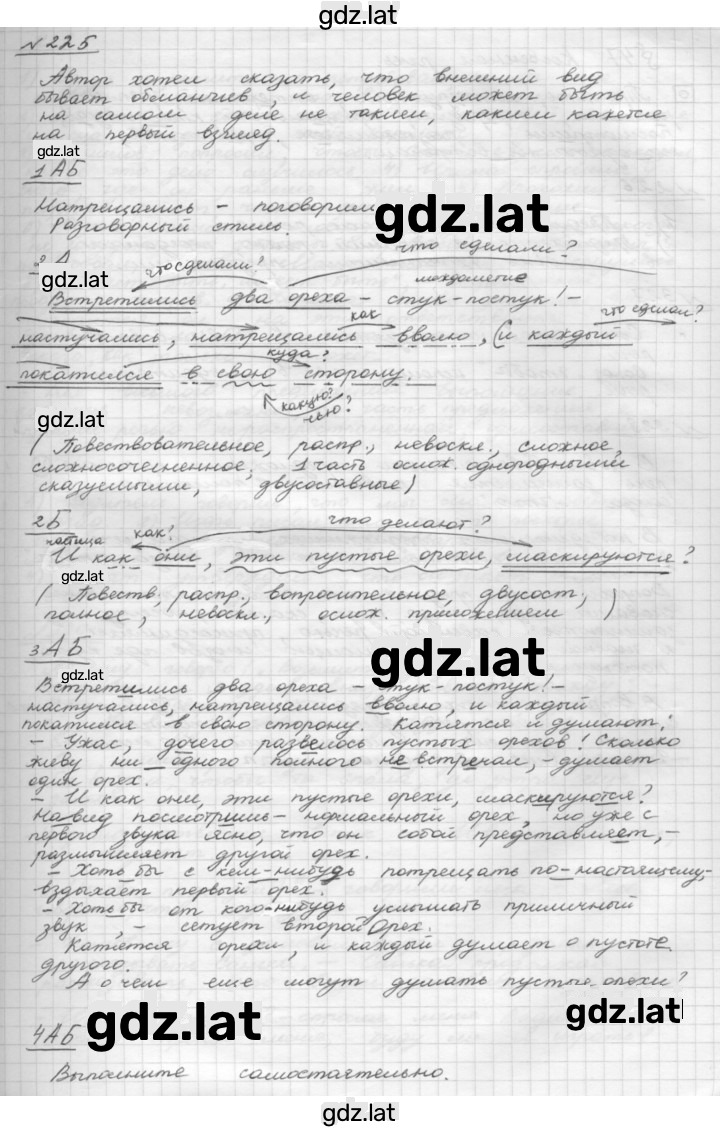 gdz.lat
№ 225
Автор хотел сказать, что внешний вид
бывает обманчив, и человек может быть
на самом деле не таким, каким кажется
на первый взгляд.
gdz.lat
1 АБ
Натрещались – поговорили
Разговорный стиль.
gdz.lat
что сделали?
что сделали?
gdz.lat
междометие
Встретились два ореха – стук-постук! –
как
что сделал?
настучались, натрещались вволю, (и каждый
куда?
покатился в свою сторону.
какую?
чью?
gdz.lat
(Повествовательное, распр., невоскл., сложное,
сложносочененное, 1 часть ослож. однородными
сказуемыми, двусоставные)
2Б
частица как? что делают?
И как они, эти пустые орехи, маскируются?
gdz.lat
(Повеств, распр., вопросительное, двусост,
полное, невоскл., ослож. приложением)
3 АБ
gdz.lat
gdz.lat
Встретились два ореха – стук-постук! –
настучались, натрещались вволю, и каждый
покатился в свою сторону. Катятся и думают:
– Ужас, до чего развелось пустых орехов! Сколько
живу ни одного полного не встречал, – думает
один орех.
– И как они, эти пустые орехи, маскируются?
На вид посмотришь – нормальный орех, но уже с
первого звука ясно, что он собой представляет, –
размышляет другой орех.
– Хоть бы с кем-нибудь потрещать по-настоящему,
вздыхает первый орех.
– Хоть бы от кого-нибудь услышать приличный
звук, – сетует второй орех.
Катятся орехи, и каждый думает о пустоте
другого.
А о чем еще могут думать пустые орехи?
gdz.lat
gdz.lat
4АБ
Выполните самостоятельно.
gdz.lat